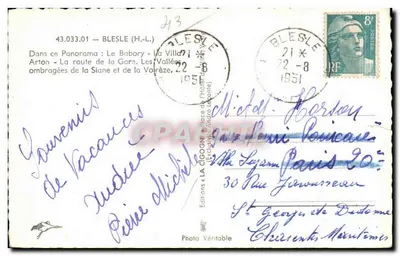 43.033.01 — BLESLE (H.-L.)
Dans ce Panorama : Le Babory - La Villa
Arton - La route de la Gare. Les Vallées
ombragées de la Siane et de la Voirèze.
BLESLE
21 *
22 - 8
1951
BLESLE
21 *
22 - 8
1951
8F
POSTES
RF
Souvenirs
de Vacances
Andrée
Pierre Michèle
Editions "LA CIGOGNE"
Photo Véritable
Paris 20e
30 Rue
St Georges de Didonne
Charente Maritime